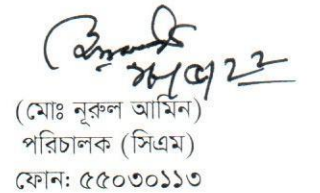 (মোঃ নূরুল আমিন)
পরিচালক (সিএম)
ফোন: ৫৫০৩০১১৩